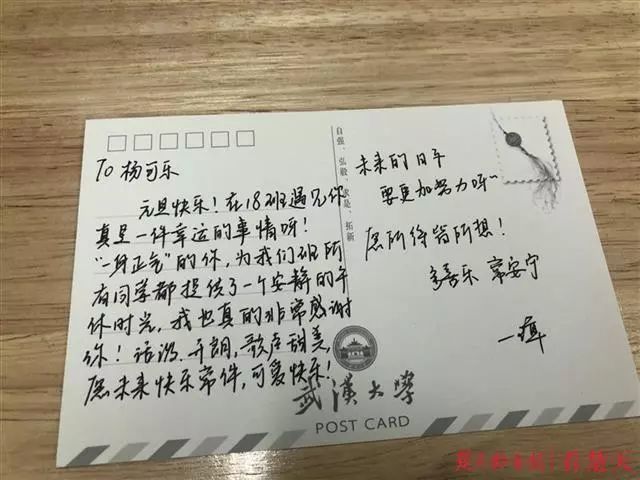 To 杨可乐
元旦快乐!在18班遇见你
真是一件幸运的事情呀!
"一身正气"的你,为我们班所
有同学都提供了一个安静的午
休时光,我也真的非常感谢
你!活泼、开朗,歌声甜美,
愿未来快乐常伴,可爱快乐!
自强、弘毅、求是、拓新
未来的日子
要更加努力呀~
愿所待皆所想!
多喜乐 常安宁
武漢大學
POST CARD